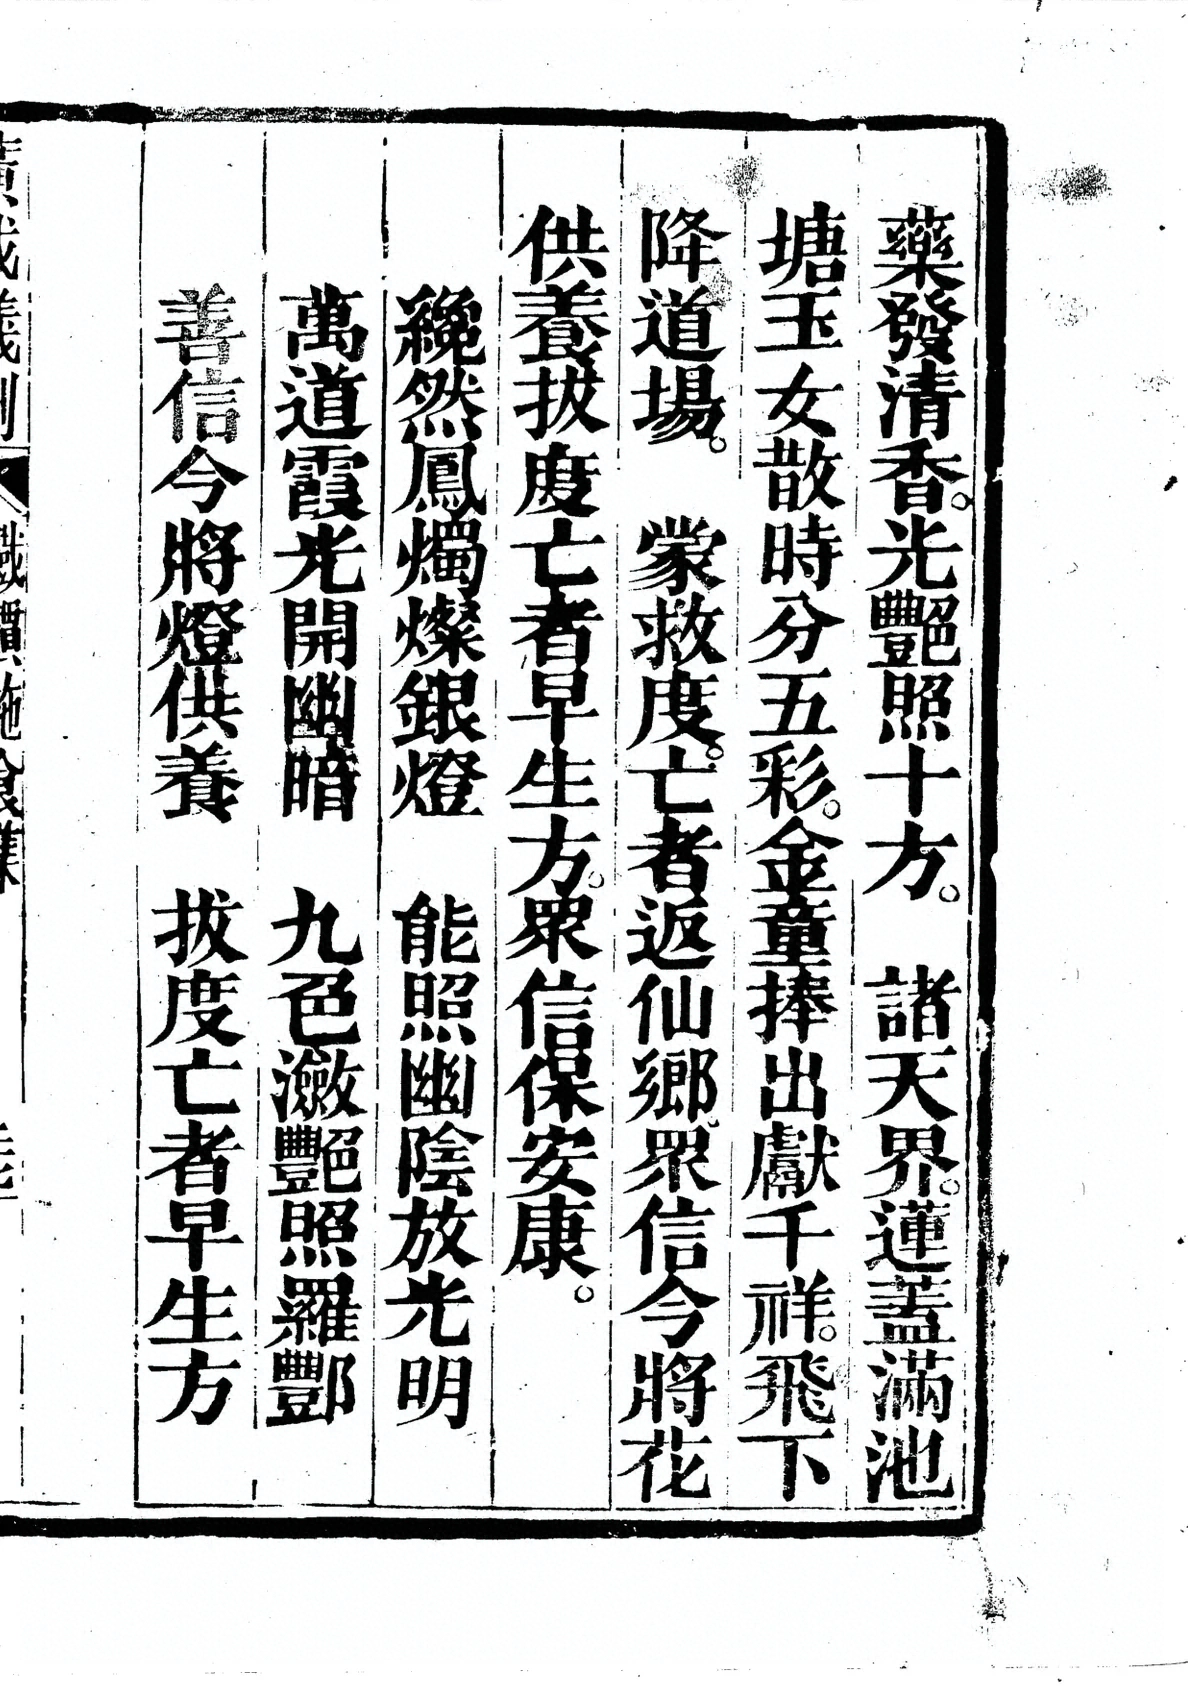 藥發清香。光豔照十方。　諸天界。蓮蓋滿池
塘玉女散時分五彩。金童捧出獻千祥。飛下
降道場。　蒙救度。亡者返仙鄉。眾信今將花
供養拔度亡者早生方。眾信保安康。
纔然鳳燭燦銀燈　能照幽陰放光明
萬道霞光開幽暗　九色瀲豔照羅酆
善信今將燈供養　拔度亡者早生方